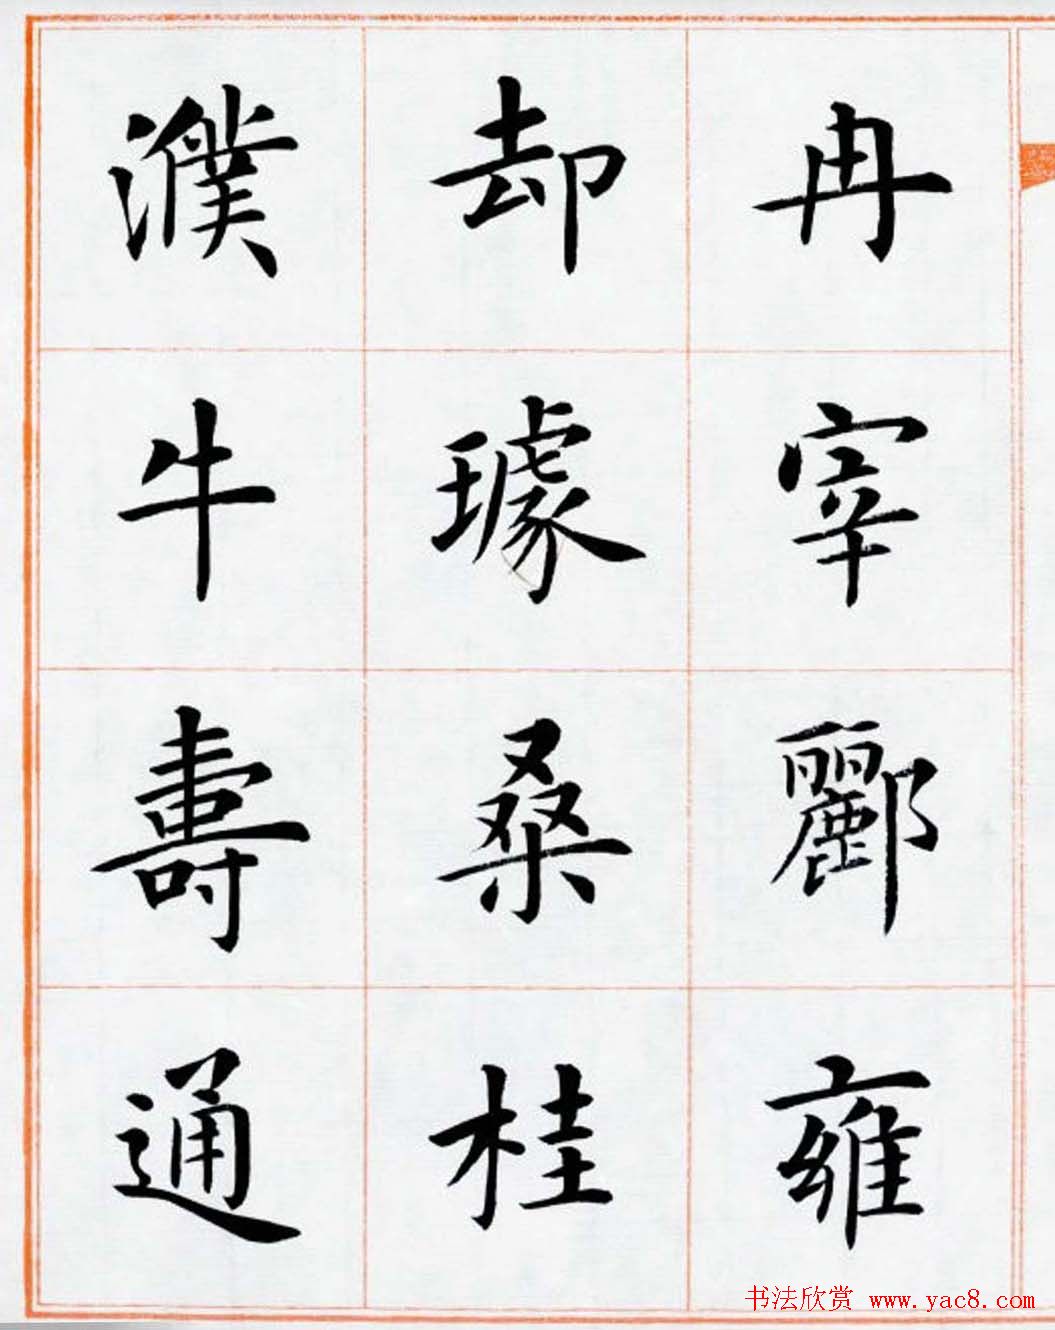 冉宰酈雍
却璩桑桂
濮牛壽通
书法欣赏 www.yac8.com